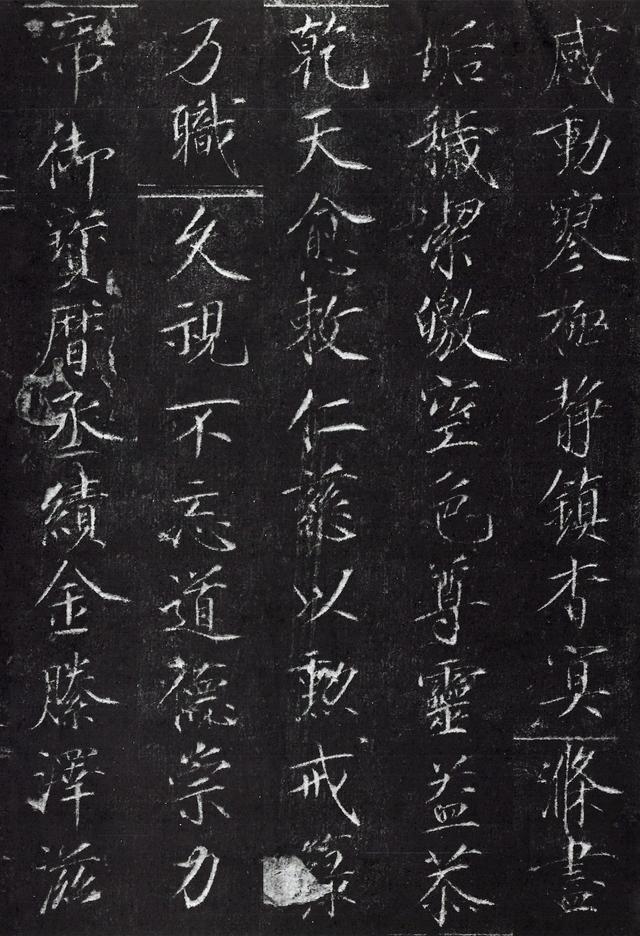 感動寥極靜鎮杳冥滌盡
垢穢潔皦空色尊靈益恭
乾天愈敕仁慈以勲戒
乃職久視不忘道德崇力
帝御寶曆丞績金縢澤滋